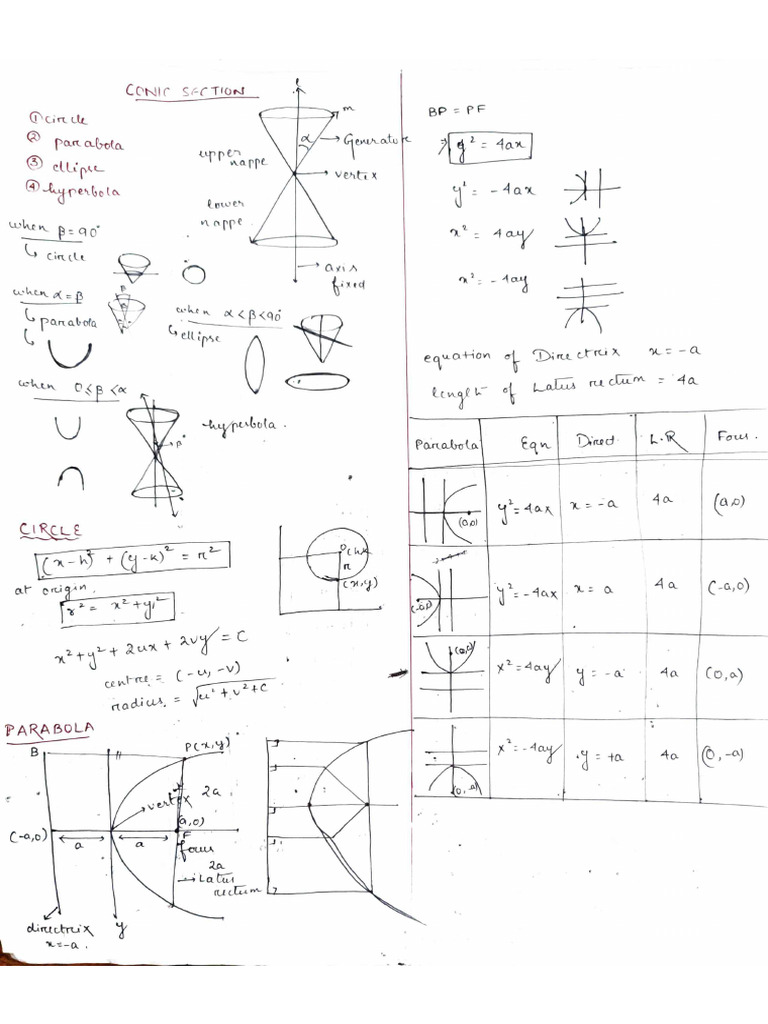 CONIC SECTION
① circle
② parabola
③ ellipse
④ hyperbola
l
m
α
Generator
upper nappe
vertex
lower nappe
axis fixed
when β = 90°
↳ circle
when α = β
↳ parabola
↳
when α < β < 90°
↳ ellipse
when 0 ≤ β < α
hyperbola.
β
CIRCLE
(x-h)² + (y-k)² = r²
at origin,
r² = x² + y²
x² + y² + 2ux + 2vy = C
centre = (-u, -v)
radius = √u² + v² + c
O(h,k)
r
(x,y)
PARABOLA
B
P(x,y)
2a
vertex
(-a,0)
a
a
(a,0)
F
focus
2a
→ Latus rectum
directrix
x = -a.
y
BP = PF
⇒ y² = 4ax
y² = -4ax
x² = 4ay
x² = -4ay
equation of Directrix x = -a
length of Latus rectum = 4a
Parabola Eqn Direct. L.R Focus.
(a,0) y² = 4ax x = -a 4a (a,0)
(-a,0) y² = -4ax x = a 4a (-a,0)
(0,a) x² = 4ay y = -a 4a (0,a)
(0,-a) x² = -4ay y = +a 4a (0,-a)